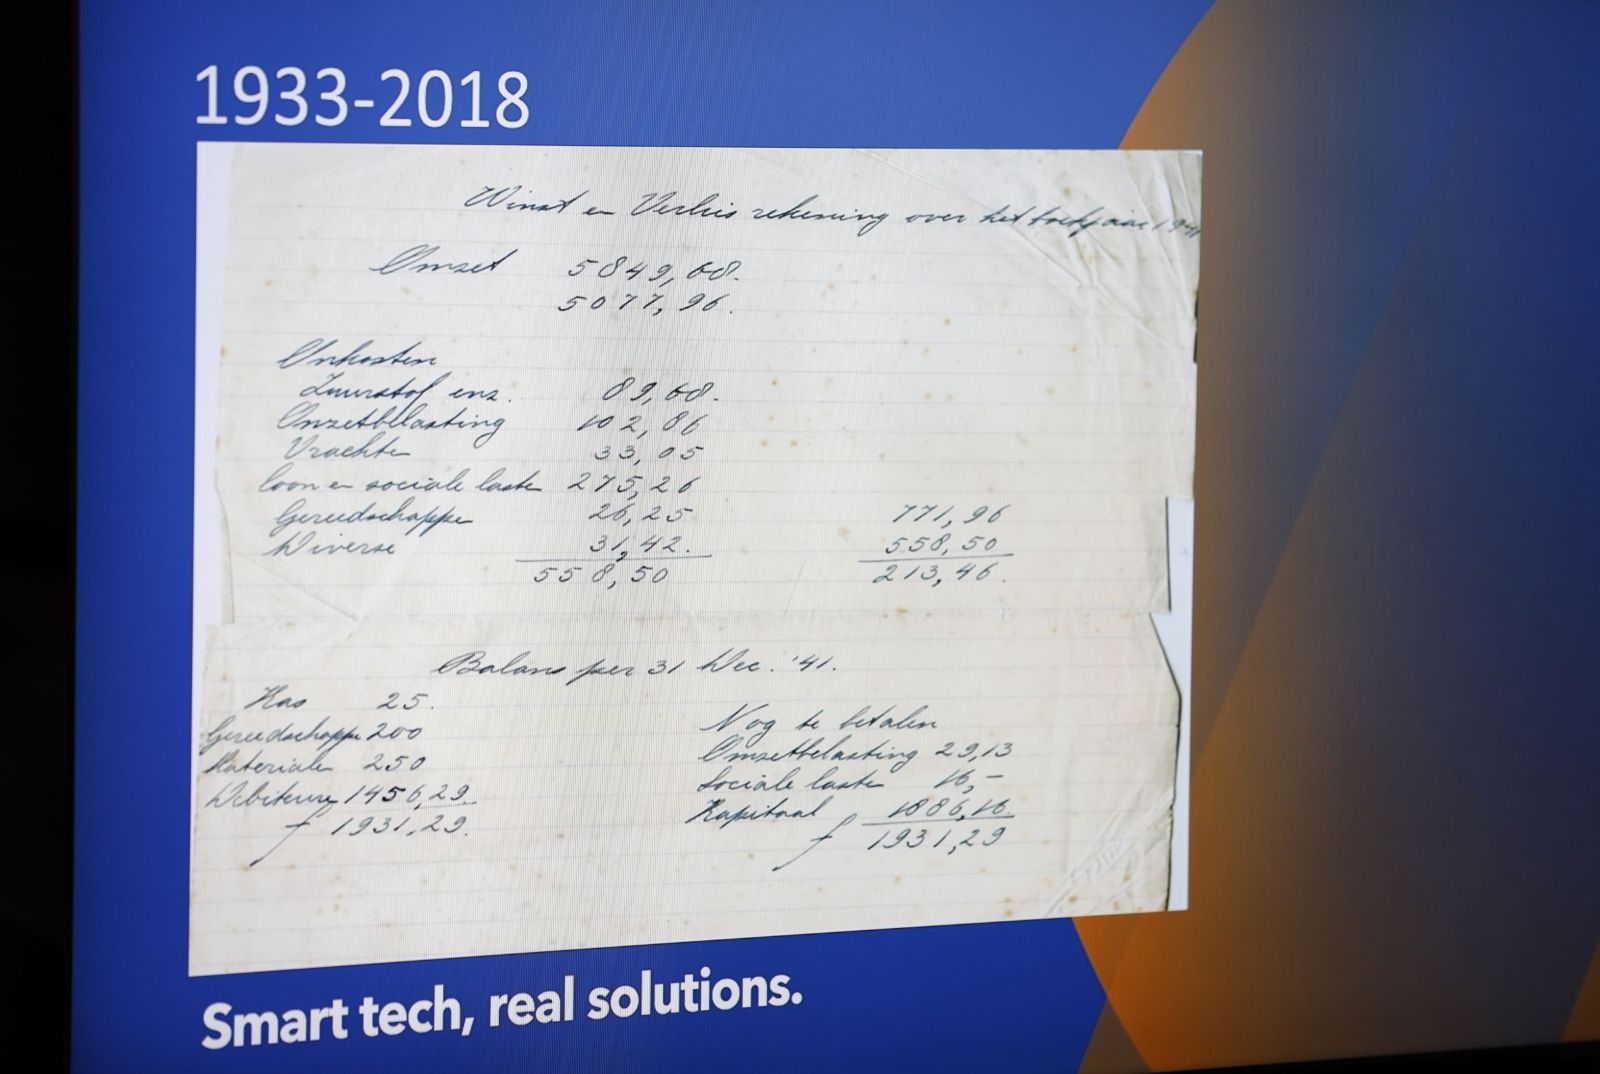 1933-2018
Winst en Verlies rekening over het boekjaar 1941
Omzet 5849,68.
5077,96.
Onkosten
Zuurstof enz. 89,68.
Omzetbelasting 102,86
Vrachten 33,05
loon en sociale lasten 275,26
Gereedschappen 26,25 771,96
Diverse 31,42. 558,50
558,50 213,46.
Balans per 31 Dec. '41.
Kas 25.
Gereedschappen 200
Materialen 250
Debiteuren 1456,29
f 1931,29.
Nog te betalen
Omzetbelasting 29,13
Sociale lasten 16,-
Kapitaal 1886,16
f 1931,29
Smart tech, real solutions.